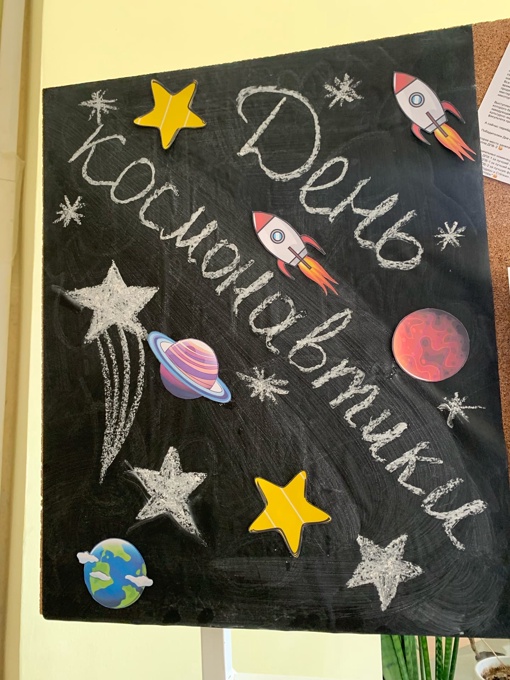 День
космонавтики